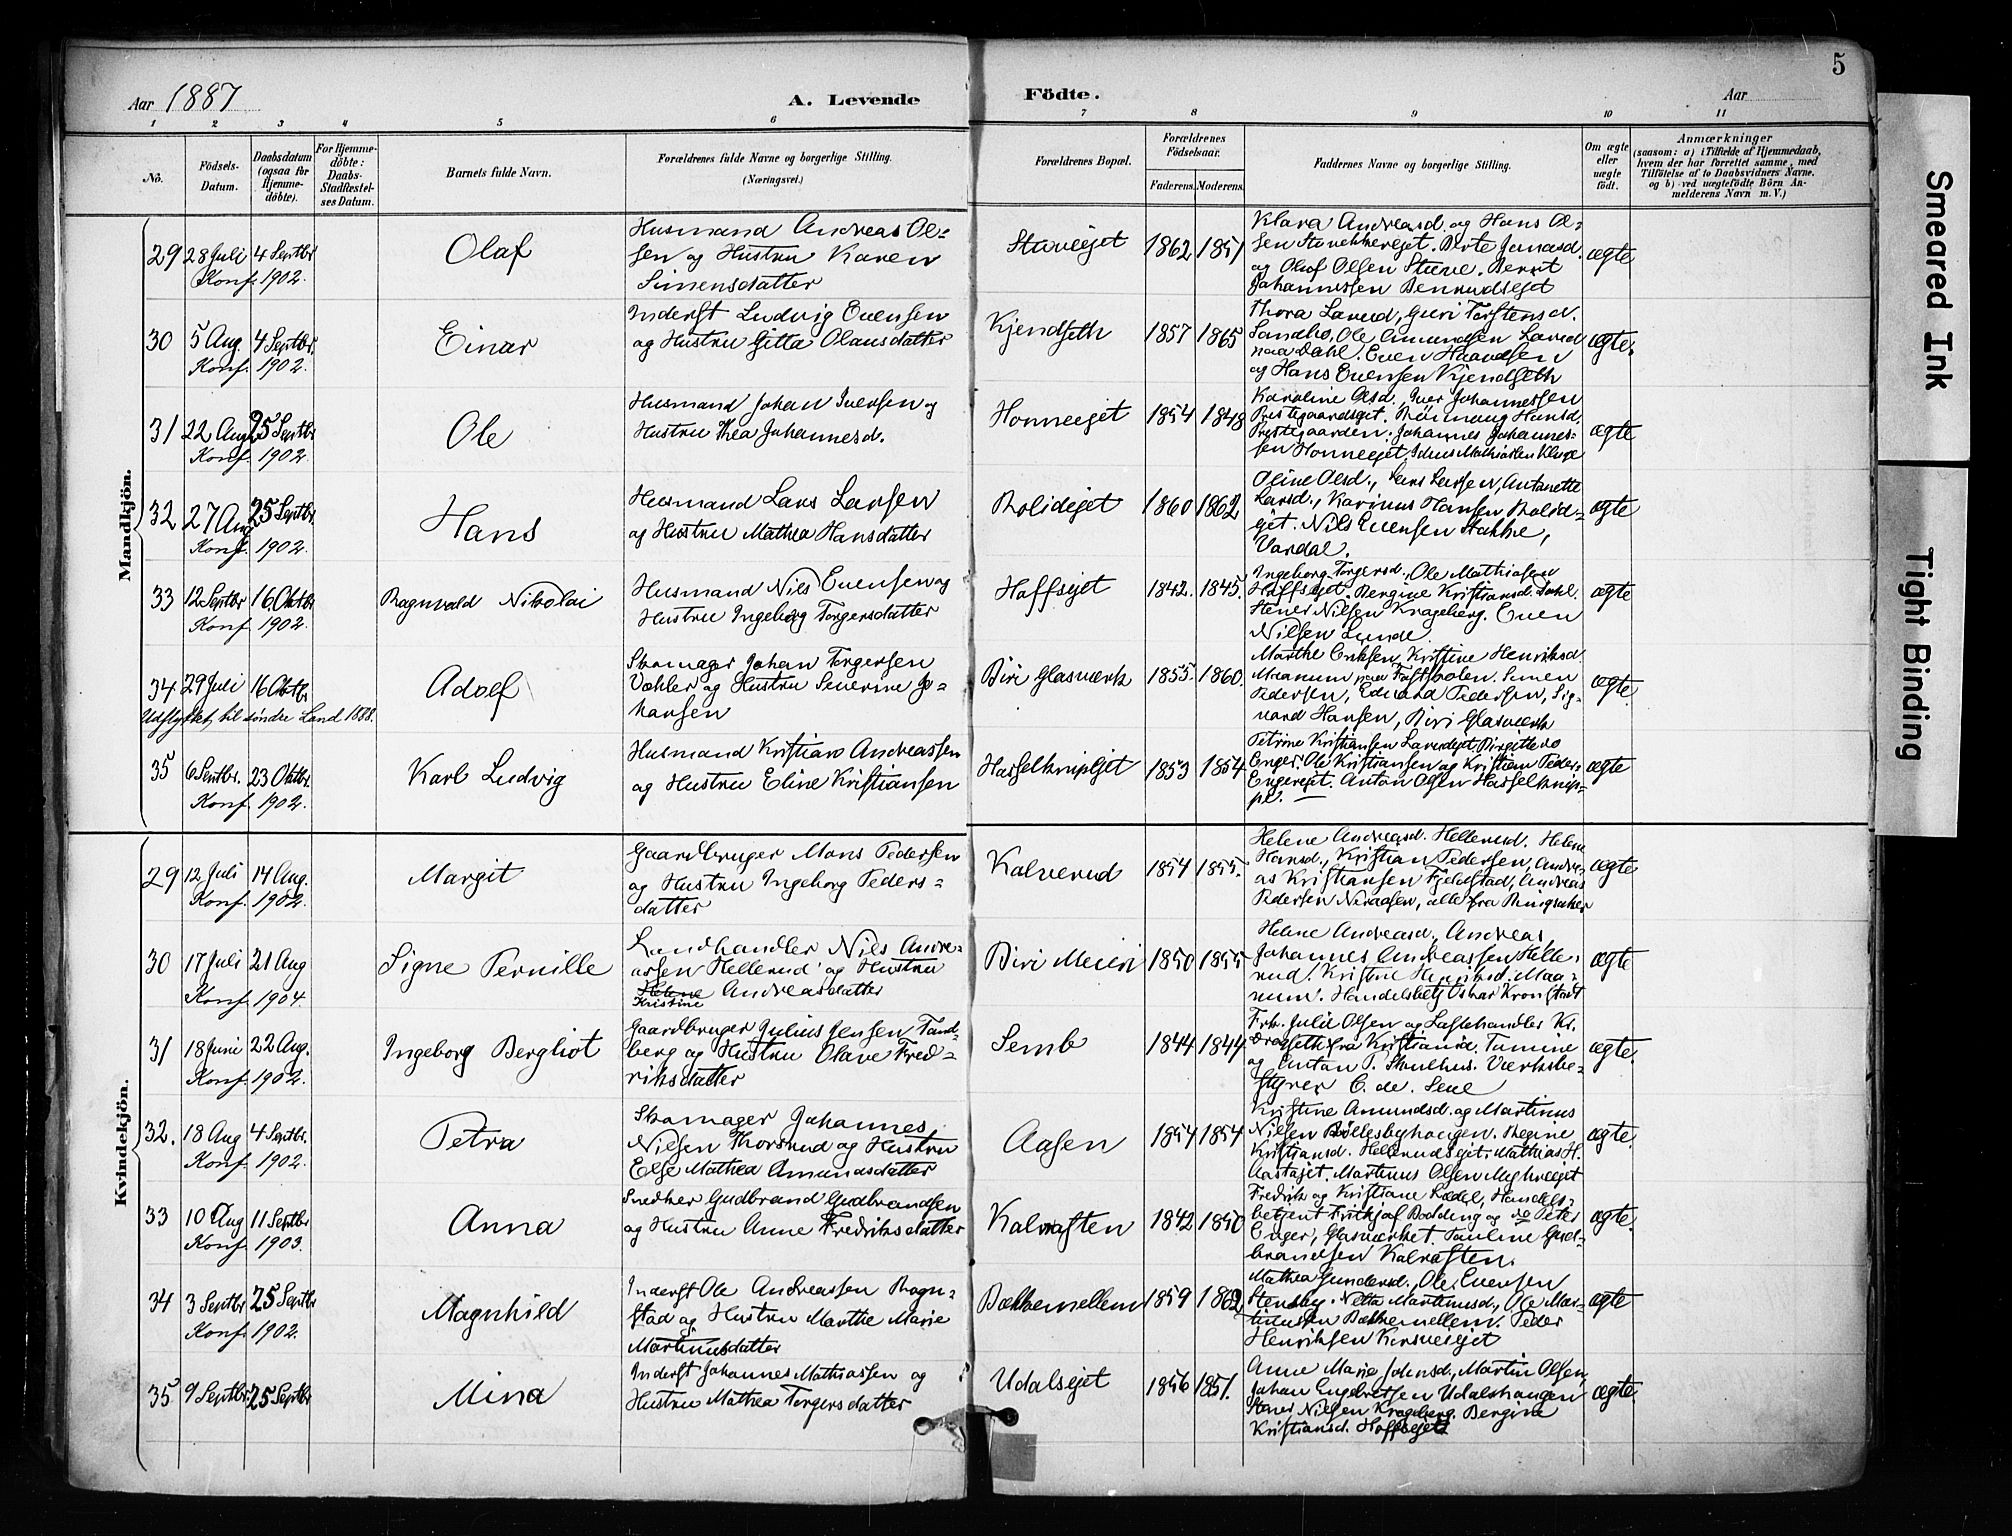 5
Aar 1887
A. Levende Födte.
Aar
1 2 3 4 5 6 7 8 9 10 11
No.
Födsels-
Datum.
Daabsdatum
(ogsaa for
Hjemme-
döbte).
For Hjemme-
döbte:
Daabs-
Stadfæstel-
ses Datum.
Barnets fulde Navn.
Forældrenes fulde Navne og borgerlige Stilling.
(Næringsvei.)
Forældrenes Bopæl.
Forældrenes
Födselsaar.
Faderens. Moderens.
Faddernes Navne og borgerlige Stilling.
Om ægte
eller
uægte
födt.
Anmærkninger
(saasom: a) i Tilfælde af Hjemmedaab,
hvem der har forrettet samme, med
Tilföielse af to Daabsvidners Navne.
og b) ved uægtefödte Börn An-
melderens Navn m. V.)
Mandkjön.
29 28 Juli 4 Septbr Olaf
Konf. 1902.
Husmand Andreas Ol-
sen og Hustru Karen
Simensdatter
Stueeiet 1862 1851
Klara Andreasd. og Hans Ol-
sen
og Oluf Olsen Stuve. Bernt
Johannessen Benrudseiet
ægte
30 5 Aug. 4 Septbr. Einar
Konf. 1902.
Inderst Ludvig Evensen
og Hustru Gitta Olausdatter
Kjendseth 1857 1865
Thora Laurud, Guri Torstensd.
Sandbo, Ole Amundsen Laurud
Dahl. Even
og Hans Evensen Kjendseth
ægte.
31 22 Aug. 25 Septbr Ole
Konf. 1902.
Husmand Johan Iversen og
Hustru Thea Johannesd.
Honneeiet 1854 1848
Karoline Olsd., Iver Johannessen
Prestegaardseiet. Hansd.
Prestegaarden. Johannes Johannes-
sen Honneeiet. Mathiassen
ægte
32 27 Aug. 25 Septbr. Hans
Konf. 1902.
Husmand Lars Larsen
og Hustru Mathea Hansdatter
Bolideiet 1860 1862
Oline Olsd., Lars Larsen, Antonette
Larsd., Karinus Hansen Bolid-
eiet. Nils Evensen
Vardal.
ægte
33 12 Septbr 16 Oktbr Ragnvald Nikolai
Konf. 1902.
Husmand Nils Evensen og
Hustru Ingeborg Torgersdatter
Hoffseiet 1842. 1845.
Ingeborg Torgersd., Ole Mathiasen
Hoffseiet. Bergine Kristiansd. Dahl.
Stener Nilsen Krageberg. Even
Nilsen Lunde.
ægte
34 29 Juli 16 Oktbr. Adolf
Udflyttet til söndre Land 1888.
Skomager Johan Torgersen
Væhler og Hustru Severine Jo-
hansen
Biri Glasværk 1855 1860.
Marthe Eriksen, Kristine Henriksd.
Maanum paa Fastholen. Simen
Pedersen, Edvard Pedersen, Sig-
vard Hansen, Biri Glasværk
ægte.
35 6 Septbr. 23 Oktbr. Karl Ludvig
Konf. 1902.
Husmand Kristian Andreassen
og Hustru Eline Kristiansen
Hasselknipeiet 1853 1854
Petrine Kristiansen Laurdeiet. Birgitte do
Enger. Ole Kristiansen og Kristian Peders.
Engereiet. Anton Olsen Hasselknip-
pe. —
ægte
Kvindekjön.
29 12 Juli 14 Aug. Margit
Konf. 1902.
Gaardbruger Mons Pedersen
og Hustru Ingeborg Peders-
datter
Kalverud 1854 1855.
Helene Andreasd. Hellerud. Helene
Hansd., Kristian Pedersen, Andre-
as Kristiansen Fjeldstad, Andreas
Pedersen Neraasen, alle fra Ringsaker
ægte
30 17 Juli 21 Aug Signe Pernille
Konf. 1904.
Landhandler Nils Andre-
assen Hellerud og Hustru
Helene
Kristine Andreasdatter
Biri Meieri 1850 1855
Helene Andreasd. Andreas,
Johannes Andreassen Helle-
rud. Kristine Henriksd. Maa-
num. Handelsbetj Oskar Kronstadt
ægte
31 18 Juni 22 Aug. Ingeborg Bergliot
Konf. 1902.
Gaardbruger Julius Jensen Tand-
berg og Hustru Olave Fred-
riksdatter
Semb 1844 1844
Frk. Julie Olsen og Kr.
fra Kristiania. Tomine
og Anton P. Skulhus. Værksbe-
styrer C. de. Seue
ægte.
32. 18 Aug 4 Septbr. Petra
Konf. 1902.
Skomager Johannes
Nilsen Thorsrud og Hustru
Else Mathea Amundsdatter
Aasen 1854 1854
Kristine Amundsd. og Martinus
Nilsen Böllesbyhaugen. Regine
Kristiansd. Hellerudseiet. Mathias H.
Aastaeiet. Martinus Olsen
ægte.
33 10 Aug 11 Septbr Anna
Konf. 1903.
Snedker Gudbrand Gudbrandsen
og Hustru Anne Fredriksdatter
Kalvaften 1842 1850
Fredrik og Kristiane Rödel, Handels-
betjent Fritkjof Bodding og do Peter
Enger, Glasværket. Pauline Gud-
brandsen Kalvaften.
ægte.
34 3 Septbr 25 Septbr Magnhild
Konf. 1902.
Inderst Ole Andreassen Rogn-
stad og Hustru Marthe Marie
Martinusdatter
Bækkemellem 1859 1862
Mathea Gundersd., Ole Evensen
Stensby. Netta Martinusd., Ole Mar-
tinusen Bækkemellem. Peder
Henriksen
ægte
35 9 Septbr 25 Septbr Mina
Inderst Johannes Mathiassen og
Hustru Mathea Torgersdatter
Udalseiet 1856 1851.
Anne Marie Johnsd., Martin Olsen,
Johan Engebretsen Udalshaugen
Stener Nielsen Krageberg. Bergine
Kristiansd. Hoffseiet
ægte.
Smeared Ink
Tight Binding